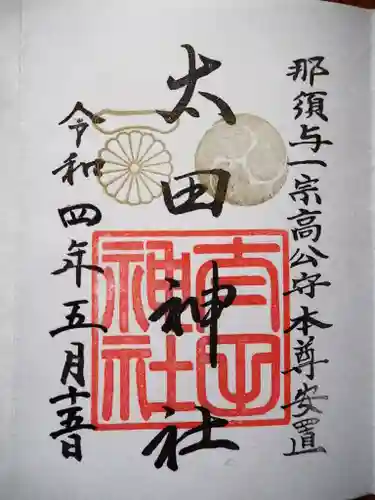 那須与一宗高公守本尊安置
太田神社
太田神社
令和四年五月十五日